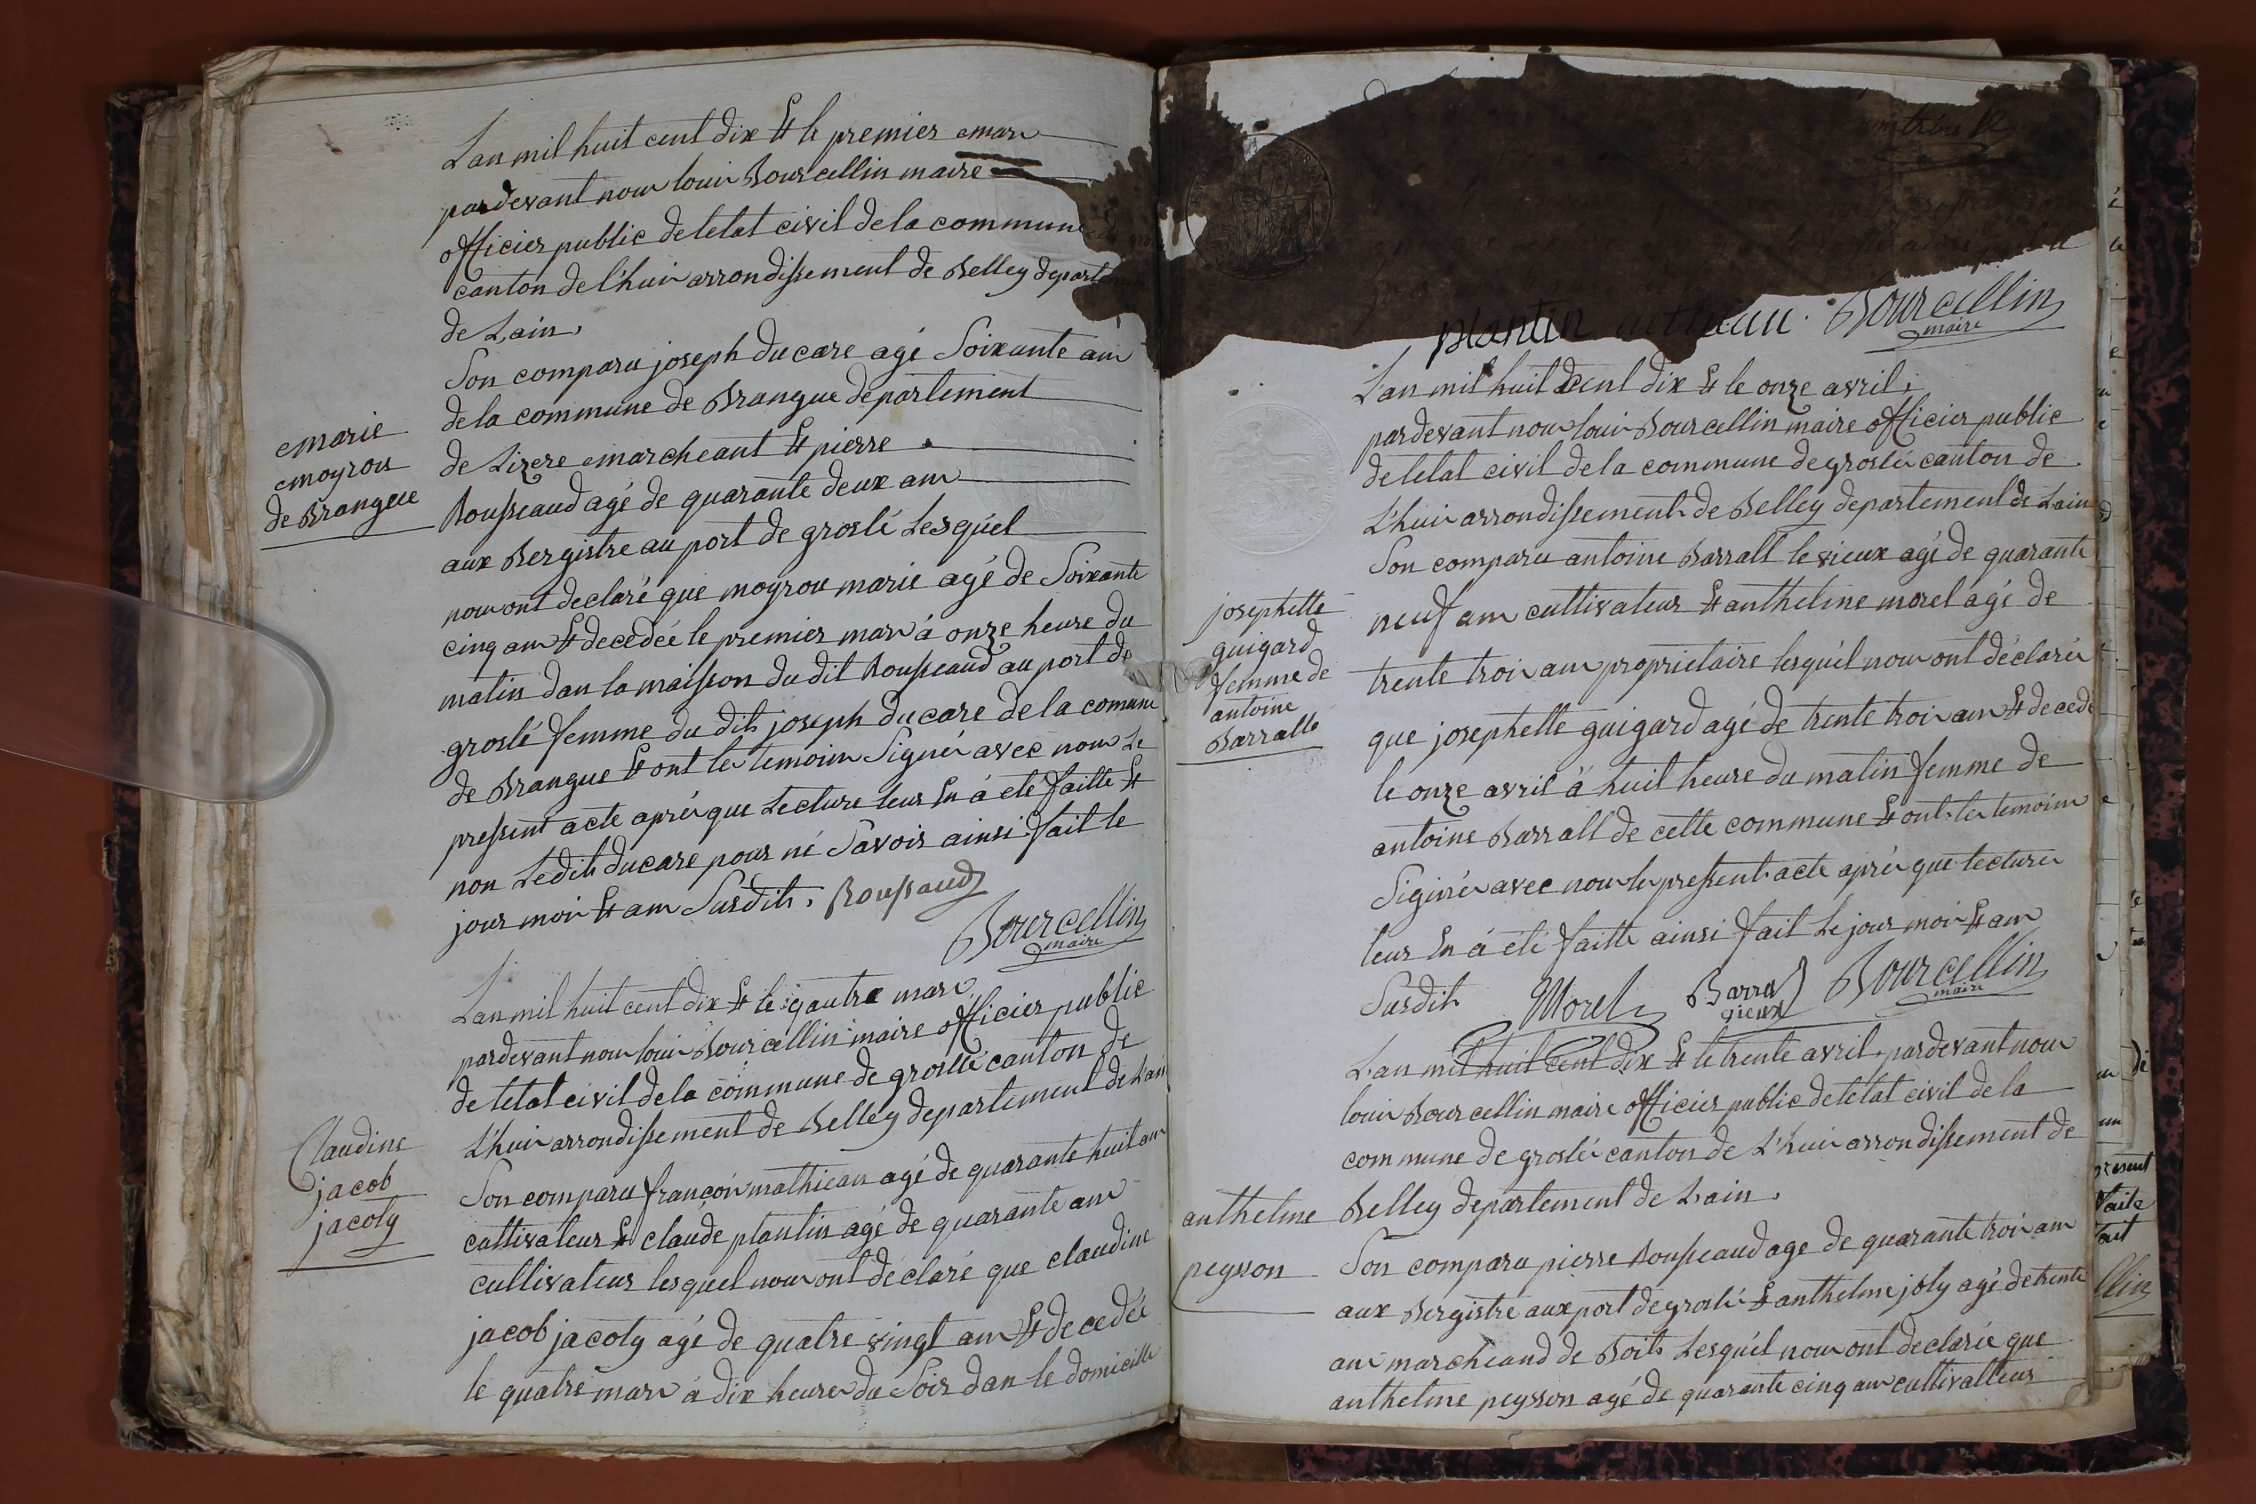 Lan mil huit cent dix & le premier mars
pardevant nous louis Bourcellin maire
officier public de letat civil de la commune
canton de l'huis arrondissement de Belley departem
de Lain,
Son comparu joseph ducare agé Soixante ans
de la commune de Brangue departement
de Lizere marcheant & pierre
marie
moyrou
de Brangue
Rousseaud agé de quarante deux ans
aux Bergistre au port de groslé Lesquel
nous ont declaré que moyrou marie agé de Soixante
cinq ans & decedée le premier mars à onze heure du
matin dans la maisson du dit Rousseaud au port de
groslé femme du dit joseph ducare de la comune
de Brangue & ont les temoins Signés avec nous Le
pressent acte aprés que Lecture leur En à eté faitte &
non Ledit ducare pour né Savoir ainsi fait le
jour mois & ans Susdit. Roussaud
Bourcellin
maire
Lan mil huit cent dix & le qautre mars
pardevant nous louis Bourcellin maire officier public
de letat civil de la commune de groslée canton de
L'huis arrondissement de Belley departement de Lain
Claudine
jacob
jacoly
Son comparu françois mathieau agé de quarante huit ans
cultivateur & claude plantin agé de quarante ans
cultivateur lesquel nous ont déclaré que claudine
jacob jacoly agé de quatre vingt ans & decedée
le quatre mars à dix heures du Soir dans le domicille
plantin
Bourcellin
maire
Lan mil huit Cent dix & le onze avril,
pardevant nous louis Bourcellin maire officier public
de letat civil de la commune de groslée canton de
L'huis arrondissement de Belley departement de Lain
Son comparu antoine Barrall le vieux agé de quarante
josephette
guigard
femme de
antoine
Barralle
neuf ans cultivateur & anthelme morel agé de
trente trois ans proprietaire lesquél nous ont déclarés
que josephette guigard agé de trente trois ans & decedé
le onze avril à huit heure du matin femme de
antoine Barrall de cette commune & ont les temoins
Siginés avec nous le pressent acte aprés que lectures
leur En à eté faitte ainsi fait Le jour mois & ans
Susdit Morel Barral vieux Bourcellin
maire
L'an mil huit cent dix & le trente avril, pardevant nous
louis Bourcellin maire officier public de letat civil de la
commune de groslée canton de L'huis arrondissement de
Belley departement de Lain.
anthelme
peysson
Son comparu pierre Rousseaud age de quarante trois ans
aux Bergistre aux port de groslé & anthelme joly agé de trente
ans marcheand de Boits Lesquél nous ont declarée que
anthelme peysson agé de quarante cinq ans cultivalleur